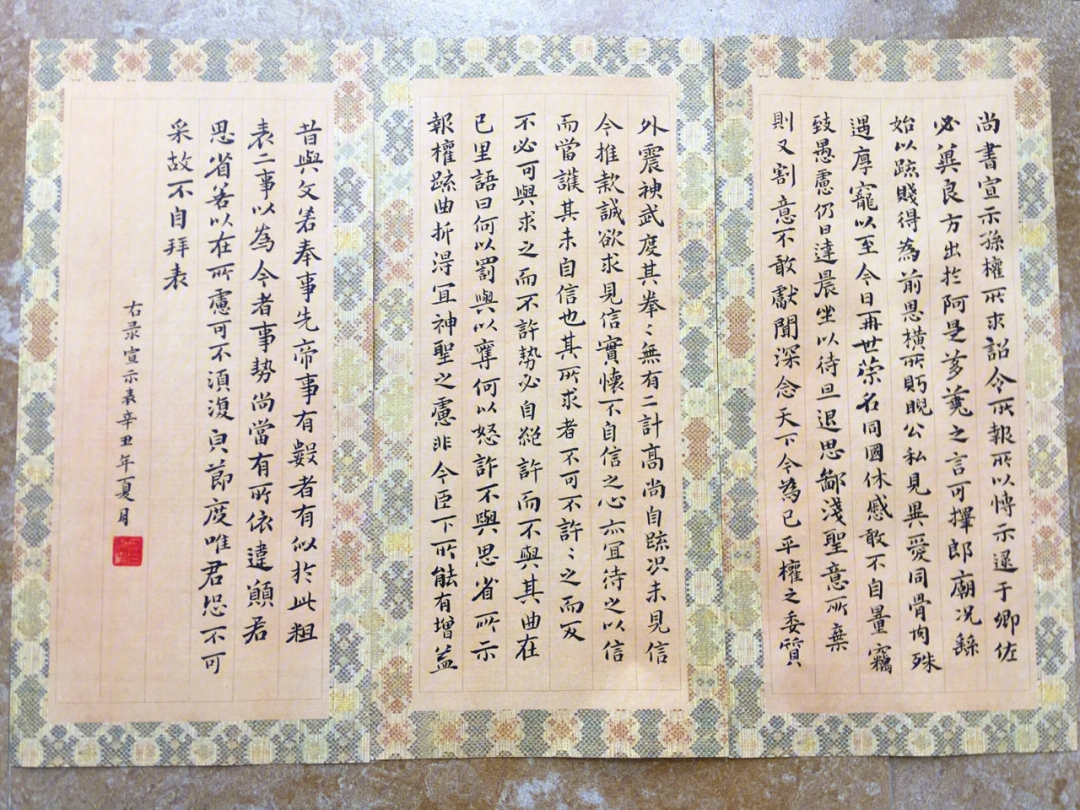 尚書宣示孫權所求詔令所報所以博示逮于卿佐
必冀良方出於阿是芻蕘之言可擇郎廟況繇
始以疏賤得為前恩橫所眄睨公私見異愛同骨肉殊
遇厚寵以至今日再世榮名同國休慼敢不自量竊
致愚慮仍日達晨坐以待旦退思鄙淺聖意所棄
則又割意不敢獻聞深念天下今為已平權之委質
外震神武度其拳〻無有二計高尚自疏況未見信
今推款誠欲求見信實懷不自信之心亦宜待之以信
而當護其未自信也其所求者不可不許〻之而反
不必可與求之而不許勢必自絕許而不與其曲在
己里語曰何以罰與以奪何以怒許不與思省所示
報權疏曲折得宜神聖之慮非今臣下所能有增益
昔與文若奉事先帝事有數者有似於此粗
表二事以為今者事勢尚當有所依違願君
思省若以在所慮可不須復㒵節度唯君恐不可
采故不自拜表
右录宣示表辛丑年夏月